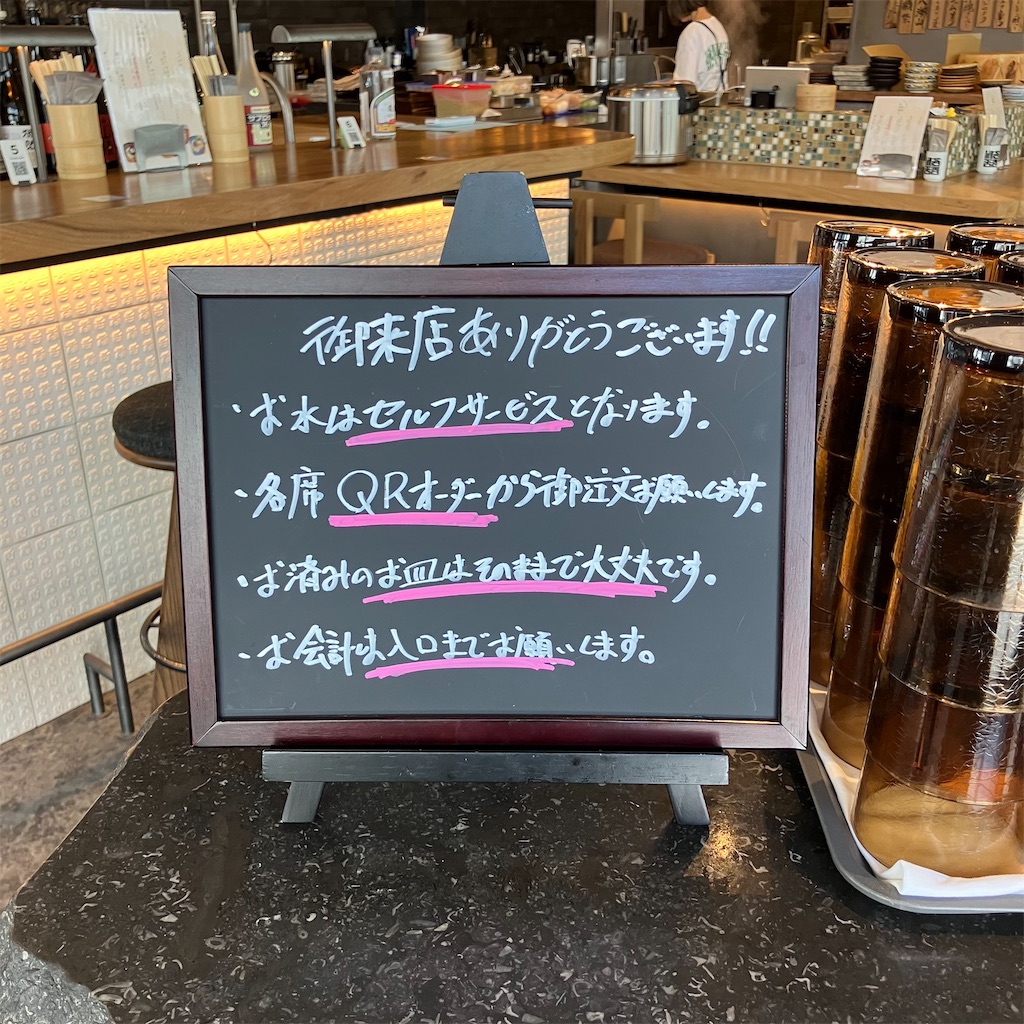 御来店ありがとうございます!!
・お水はセルフサービスとなります。
・各席 QRオーダーから御注文お願いします。
・お済みのお皿はそのままで大丈夫です。
・お会計は入口までお願いします。
5